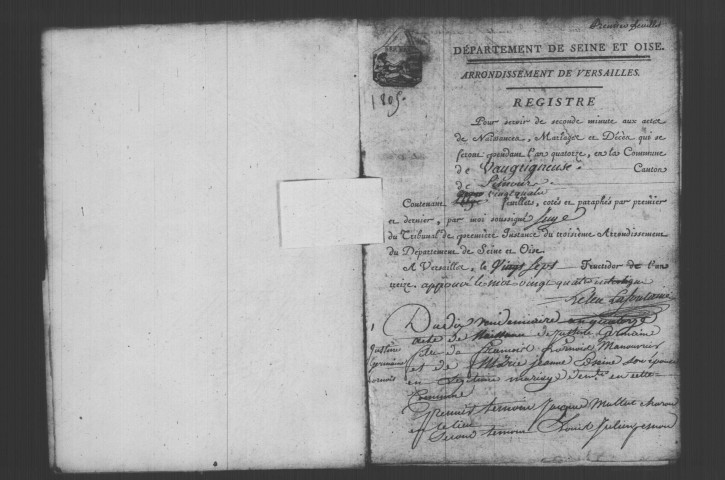 Premier feuillet
DÉPARTEMENT DE SEINE ET OISE.
ARRONDISSEMENT DE VERSAILLES.
1805.
REGISTRE
Pour servir de seconde minute aux actes
de Naissances, Mariages et Décès qui se
feront pendant l'an quatorze, en la Commune
de Vaugrigneuse. Canton
de Limours.
vingt quatre
Contenant feuillets, cotés et paraphés par premier
et dernier, par moi soussigné Juge
du Tribunal de première Instance du troisième Arrondissement
du Département de Seine et Oise.
A Versailles, le Vingt Sept Fructidor de l'an
treize. approuvé le mot vingt quatre
Du dix vendemiaire an quatorze
acte de Naissance de Justine Germaine
fille de François Manouvrier
et de Marie Jeanne son épouse
en légitime mariage dem.ts en cette
Commune
Premier temoin Jacques Mallet charon
Second temoin Louis
Justine
Germaine